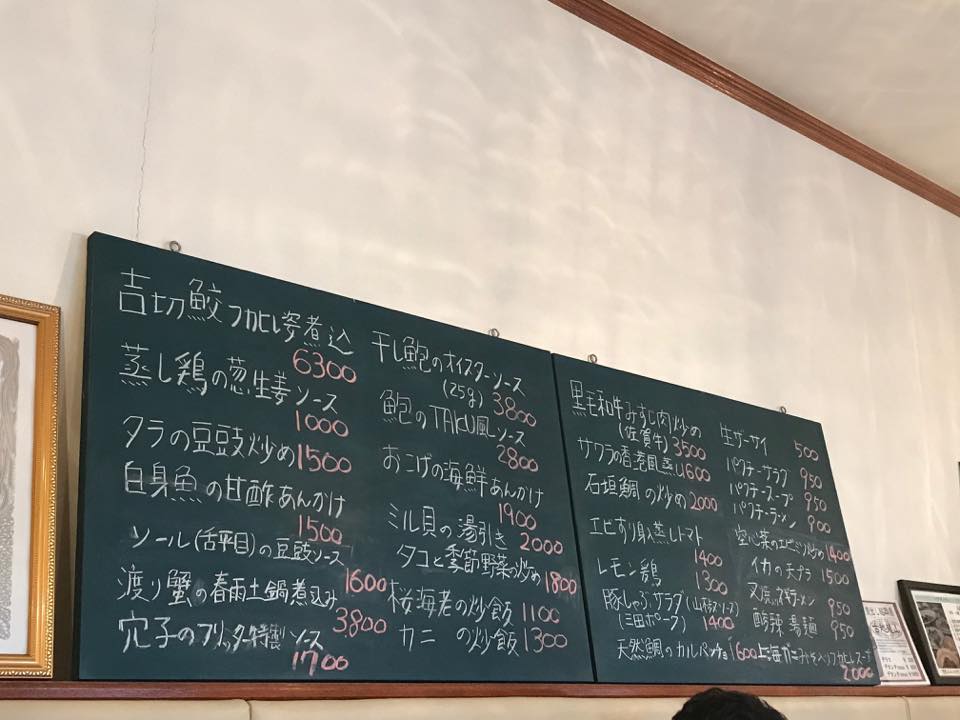 吉切鮫フカヒレ姿煮込
6300
蒸し鶏の葱生姜ソース
1000
タラの豆豉炒め1500
白身魚の甘酢あんかけ
1500
ソール(舌平目)の豆豉ソース
1600
渡り蟹の春雨土鍋煮込み
3800
穴子のフリッター特製ソース
1700
干し鮑のオイスターソース
(25g) 3800
鮑のTAKU風ソース
2800
おこげの海鮮あんかけ
1900
ミル貝の湯引き 2000
タコと季節野菜の炒め 1800
桜海老の炒飯 1100
カニ の炒飯 1300
黒毛和牛みすじ肉炒め
(佐賀牛) 3500
サワラの香港風蒸し1600
石垣鯛の炒め 2000
エビすり身蒸しトマト
1400
レモン鶏 1300
豚しゃぶサラダ(山椒ソース)
(三田ポーク) 1400
天然鯛のカルパッチョ 1600
生ザーサイ 500
パクチーサラダ 950
パクチースープ 950
パクチーラーメン 900
空心菜のエビミソ炒め 1400
イカの天プラ 1500
叉焼ネギラーメン 950
酸辣湯麺 950
上海ガニみそ入りフカヒレスープ
2000